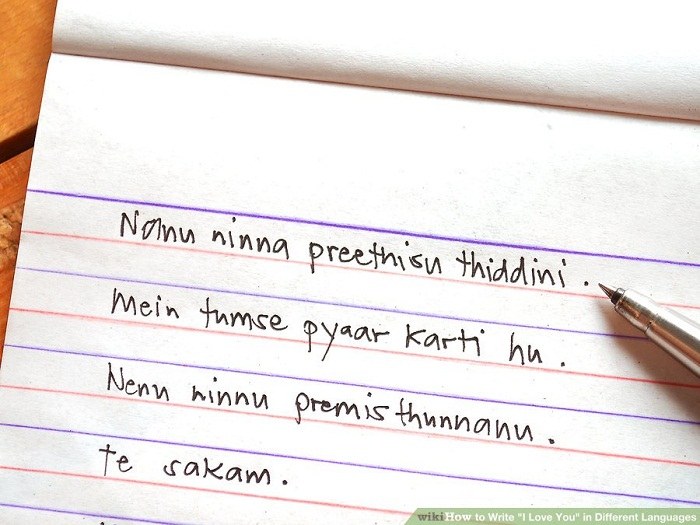 Nanu ninna preethisu thiddini .
Mein tumse pyaar karti hu .
Nenu ninnu premisthunnanu .
te sakam .
wikiHow to Write "I Love You" in Different Languages